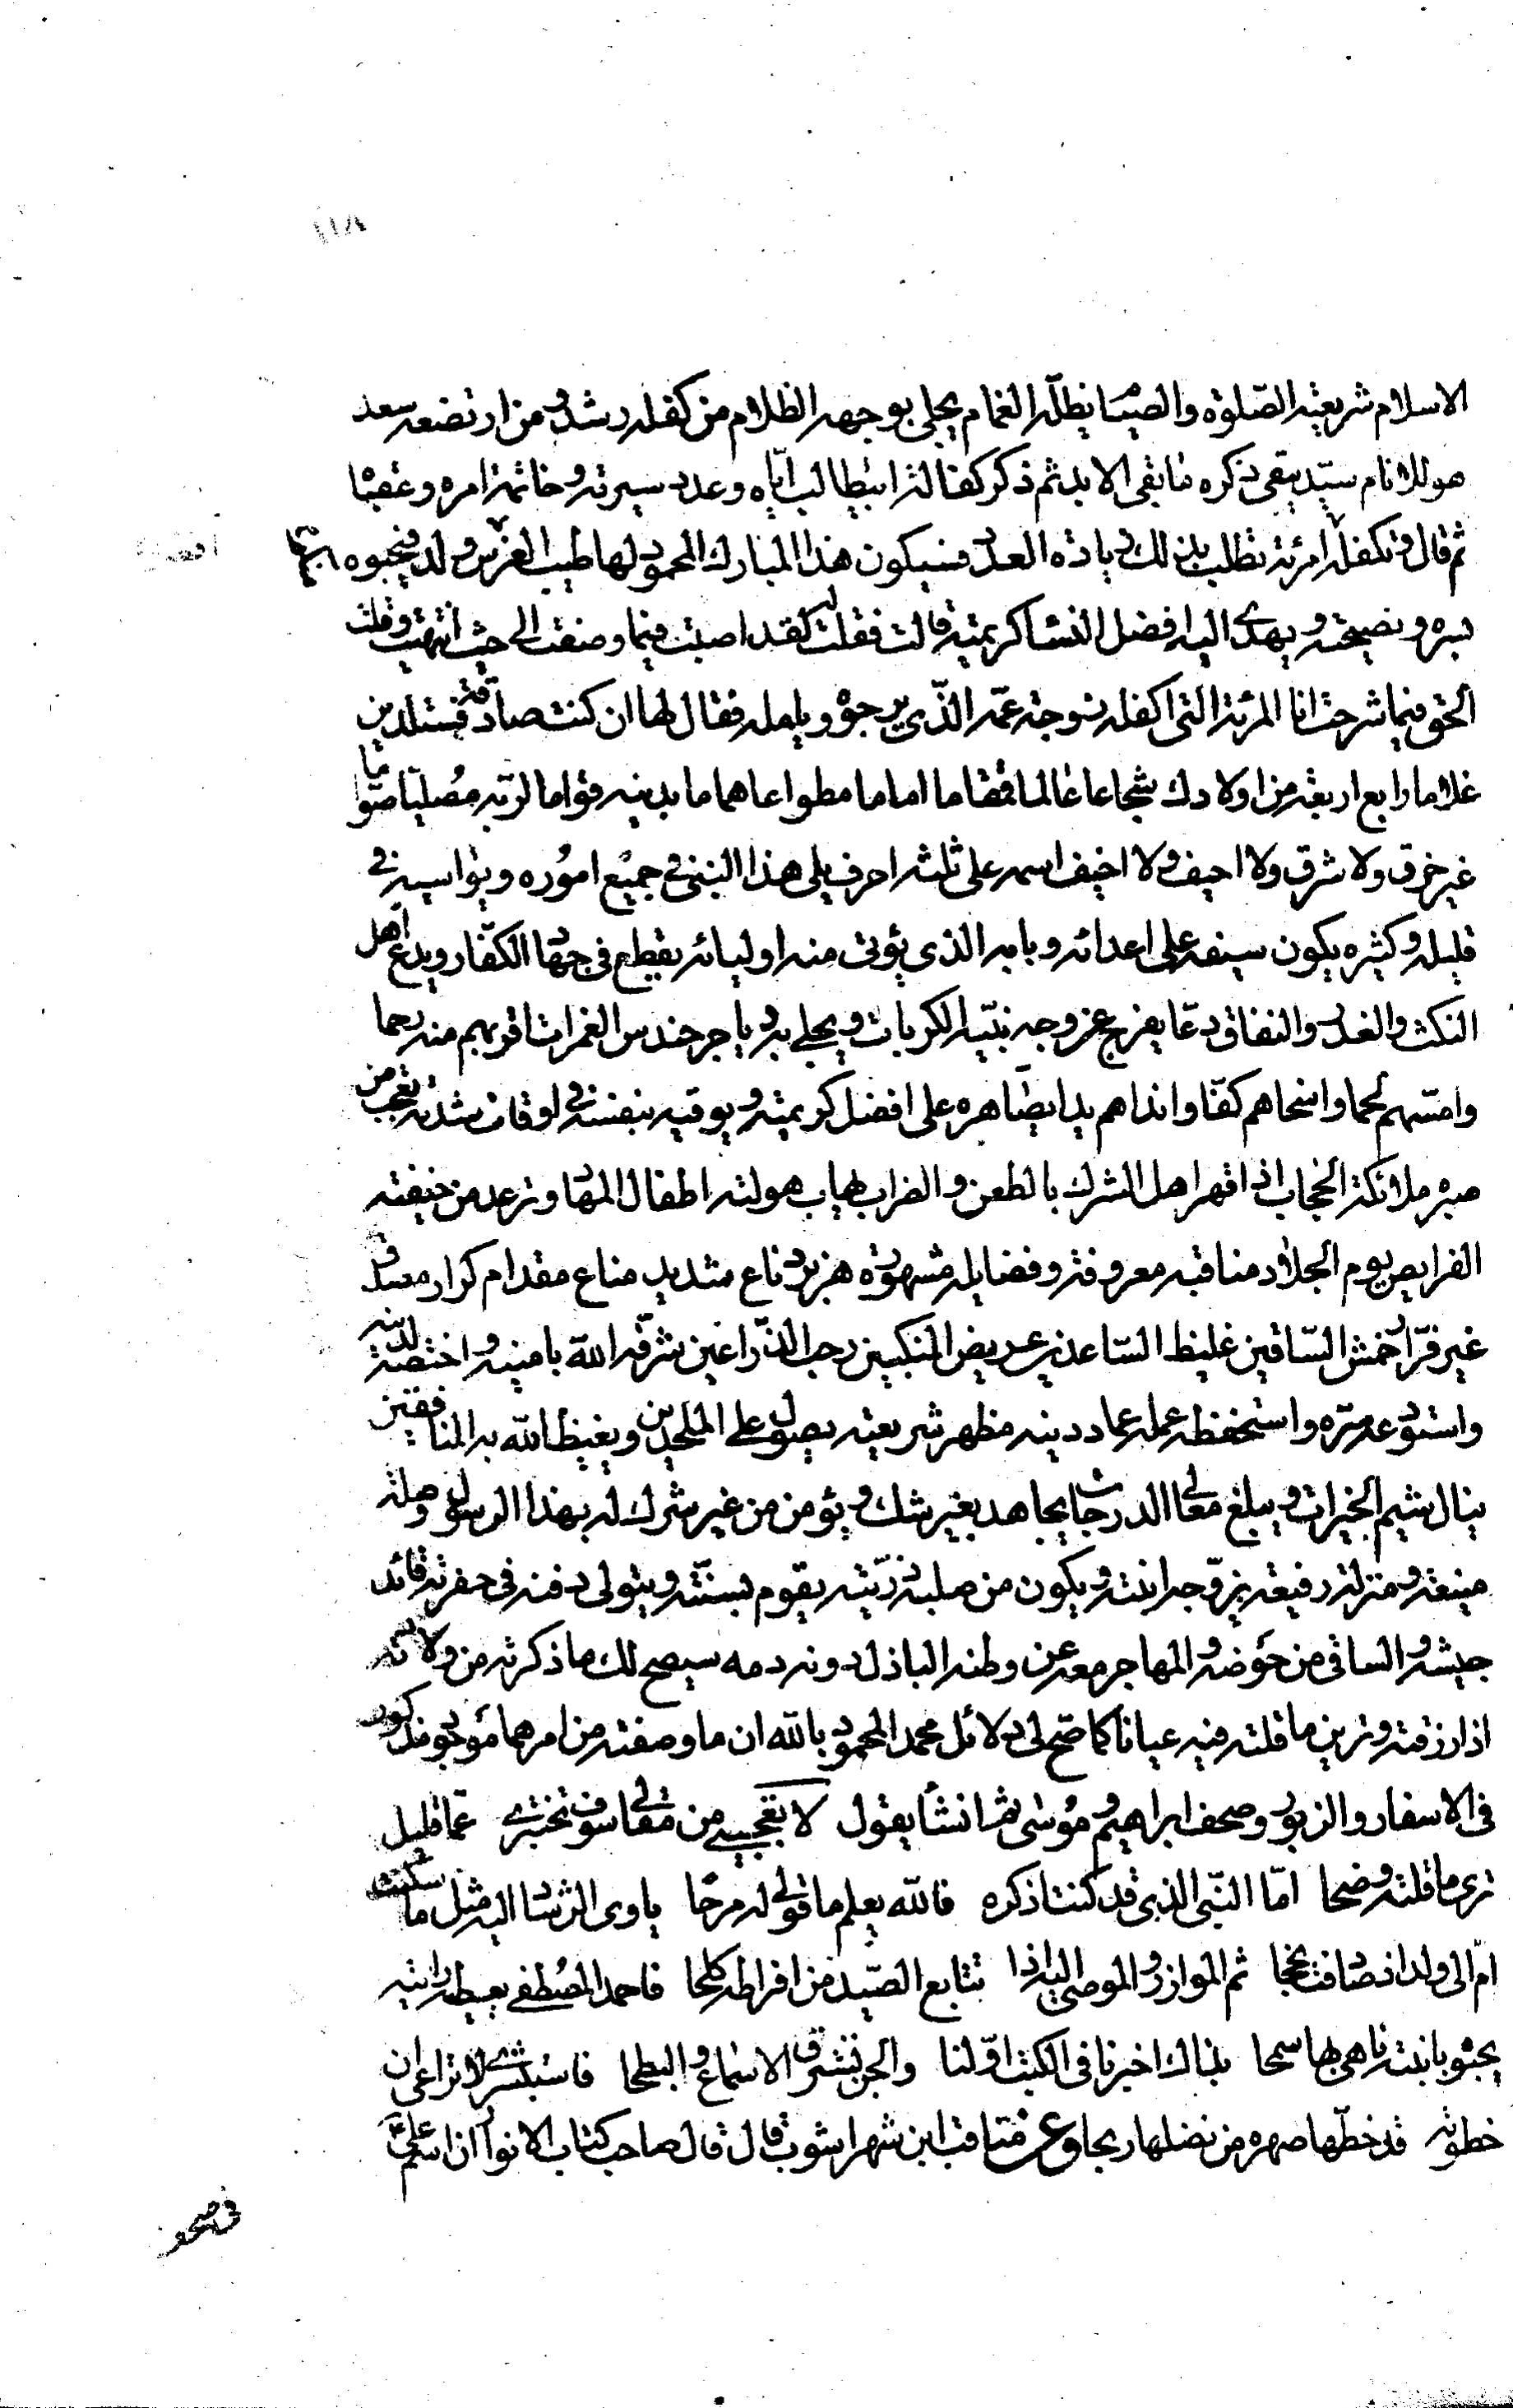 الاسلام شريعته الصّلوة والصيام يظلّه الغمام يجلى بوجهه الظلام من كفله رشد ومن ارتضعه سعد
هو للانام سيّد يبقى ذكره ما بقى الابد ثم ذكر كفالة ابيطالب ايّاه وعدد سيرته وخاتمة امره وعقباها
ثم قال وتكفله امرئة تطلب بذلك زيادة العدد فسيكون هذا المبارك المحمود لها طيب الغرس ولد فيحبوه
بسره ونصيحته ويهدى اليه افضل النساء كريمته قالت فقلت له لقد اصبت فيما وصفت الى حيث انتهيت وقلت
الحق فيما شرحت انا المرئة التى اكفله زوجة عمّه الذّى يرجوه ويامله فقال لها ان كنت صادقة فستلدين
غلاما رابع اربعة من اولادك شجاعا عالما قمقاما اماما مطواعا هماما بدينه قواما لربّه مصليّا صوّاما
غير خرق ولا نزق ولا احيف ولا اخيف اسمه على ثلثة احرف يلى هذا النبى فى جميع اموره ويواسيه فى
قليله وكثيره يكون سيفه على اعدائه وبابه الذى يؤتى منه اوليائه يقطع فى جهاده الكفّار ويدع اهل
النكث والغدر والنفاق دعّا يفرج عن وجه نبيّه الكربات ويجلى به دياجر حندس الغمرات اقربهم منه رحما
وامسّهم لحما واسخاهم كفّا وانداهم يدا يصاهره على افضل كريمته ويوقيه بنفسه فى اوقات شدته تعجب من
صبره ملائكة الحجاب اذا قهر اهل الشرك بالطعن والضراب يهاب هولته اطفال المهاد وترعد من خيفته
الفرايص يوم الجلاد مناقبه معروفة وفضايله مشهورة هزبر دفاع شديد مناع مقدام كرار مصدق
غير فرّار خمش السّاقين غليظ السّاعدين عريض المنكبين رحب الذّراعين شرّفه الله بامينه واختصه لدينه
واستودعه سرّه واستحفظه علمه عماد دينه مظهر شريعته يصول على الملحدين ويغيظ الله به المنافقين
ينال شيم الخيرات ويبلغ معالى الدرجات يجاهد بغير شك ويؤمن من غير شرك له بهذا الرسول وصلة
منيعة ومنزلة رفيعة يزوّجه ابنته ويكون من صلبه ذرّيته يقوم بسنّته ويتولى دفنه فى حفرته قائد
جيشه والساقى من حوضه والمهاجر معه عن وطنه الباذل دونه دمه سيصح لك ما ذكرته من ولايته
اذا رزقته وترين ما قلته فيه عيانا كما صح لى دلائل محمد المحمود بالله ان ما وصفته من امرهما موجود مذكور
فى الاسفار والزبور وصحف ابراهيم وموسى ثم انشأ يقول لا تعجبى من مقالى سوف تختبرى عمّا قليل
ترى ما قلته وضحا امّا النّبى الذى قد كنت اذكره فالله يعلم ما قولى له مرحا ياوى الرشاد اليه مثل ما سكنت
امّ الى ولد اذ صادفت نجحا ثم الموازر والموصى اليه اذا تتابع الصّيد من افراطه كلحا فاحمد المصطفى يعطيه رايته
يحبو بابنته ناهى بها سمحا بذاك اخبرنا فى الكتب اوّلنا والجن تسترق الاسماع والبطحا فاستبشرى لا تراعى ان
خطوبه قد خطّها صهره من فضلها ربحا وعن مناقب ابن شهراشوب قال قال صاحب كتاب الانوار ان اسم علىّ
فى صحف